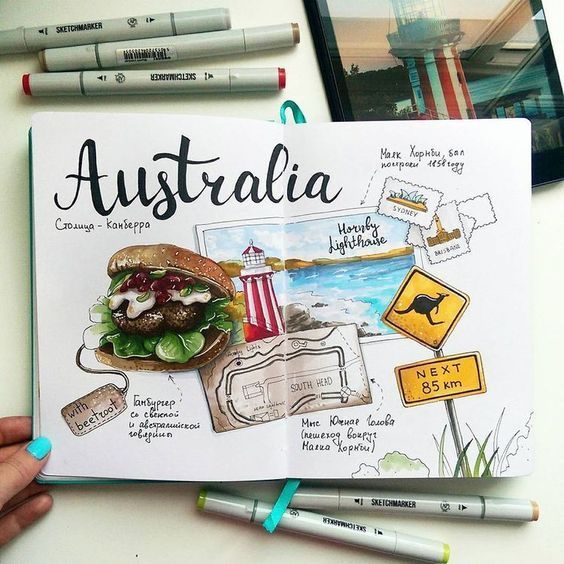 SKETCHMARKER
SKETCHMARKER
SKETCHMARKER
Australia
Столица - Канберра
Маяк Хорнби, был
построен 1858 году
SYDNEY
BRISBANE
Hornby
Lighthouse
NEXT
85 km
SOUTH HEAD
with
beetroot
Гамбургер
со свеклой
и австралийской
говядины
Мыс Южная Голова
(пешеход вокруг
Маяка Хорнби)
SKETCHMARKER
SKETCHMARKER